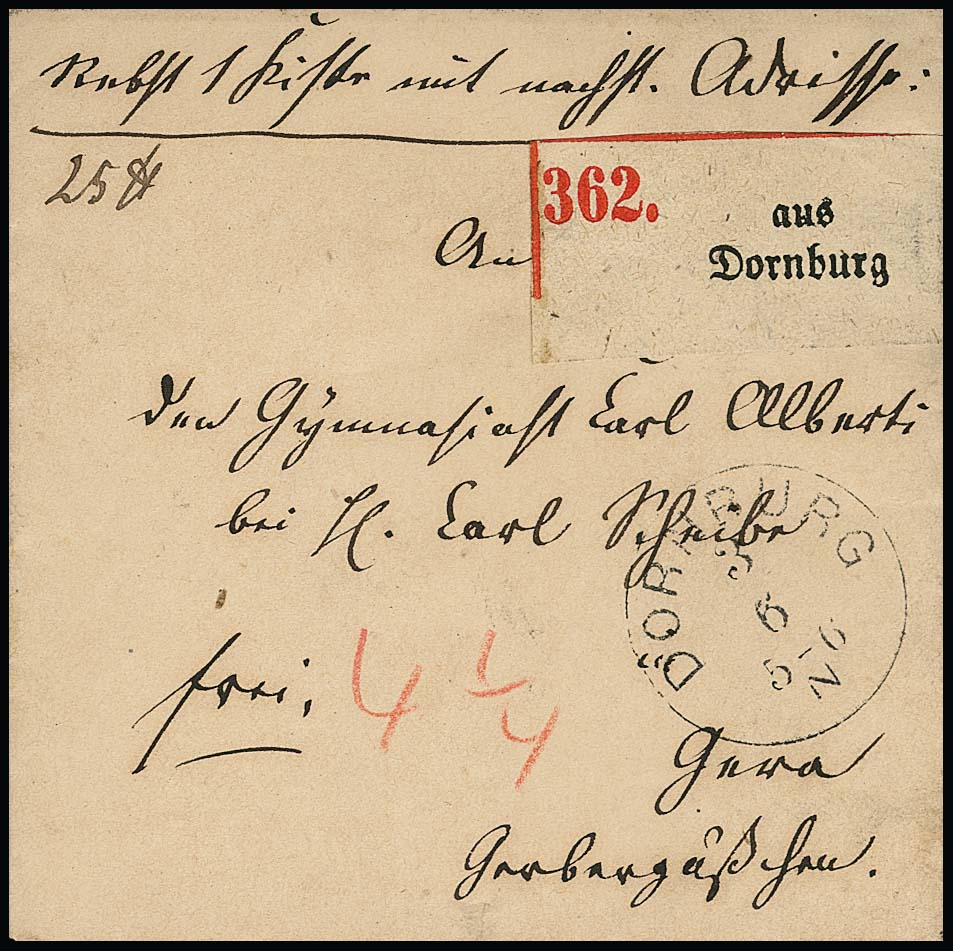 Nebst 1 Kiste mit nachst. Adresse:
25 ℔
362.
aus
Dornburg
An
den Gymnasiast Carl Alberti
bei H. Carl Scheibe
DORNBURG
3
6
5-6 N
frei.
4 1/4
Gera
Gerbergäßchen.